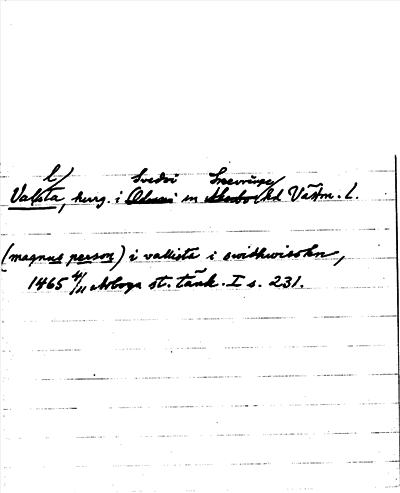 l/ Svedvi Snevringe
Valsta, herg. i Odensvi sn Åkerbo hd Västm. L.
(magnus person) i vallista i swidhwisokn,
1465 4/11 Arboga st. tänk. I s. 231.